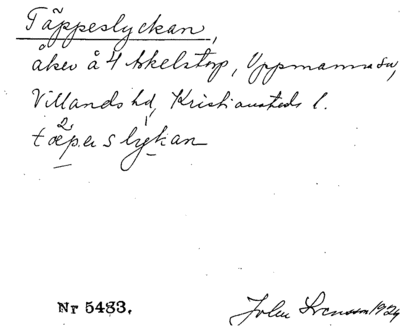 Täppeslyckan,
åker å 4 Arkelstorp, Oppmanna sn,
Villands hd, Kristianstads l.
tæ²p.ɐ s ly̍kan
Nr 5483.
John Svensson 1924